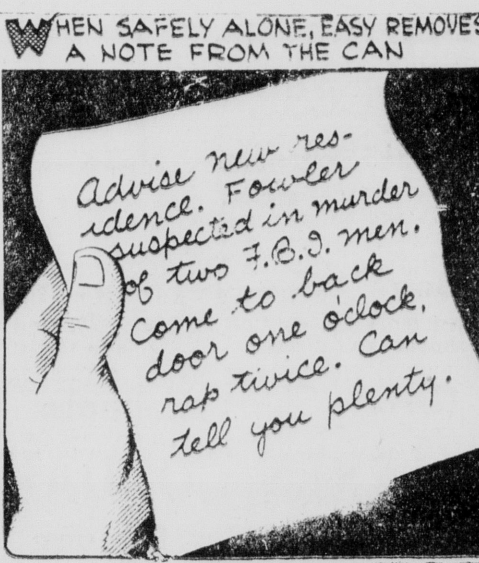 WHEN SAFELY ALONE, EASY REMOVES
A NOTE FROM THE CAN
Advise new res-
idence. Fowler
suspected in murder
of two F.B.I. men.
Come to back
door one o'clock,
rap twice. Can
tell you plenty.